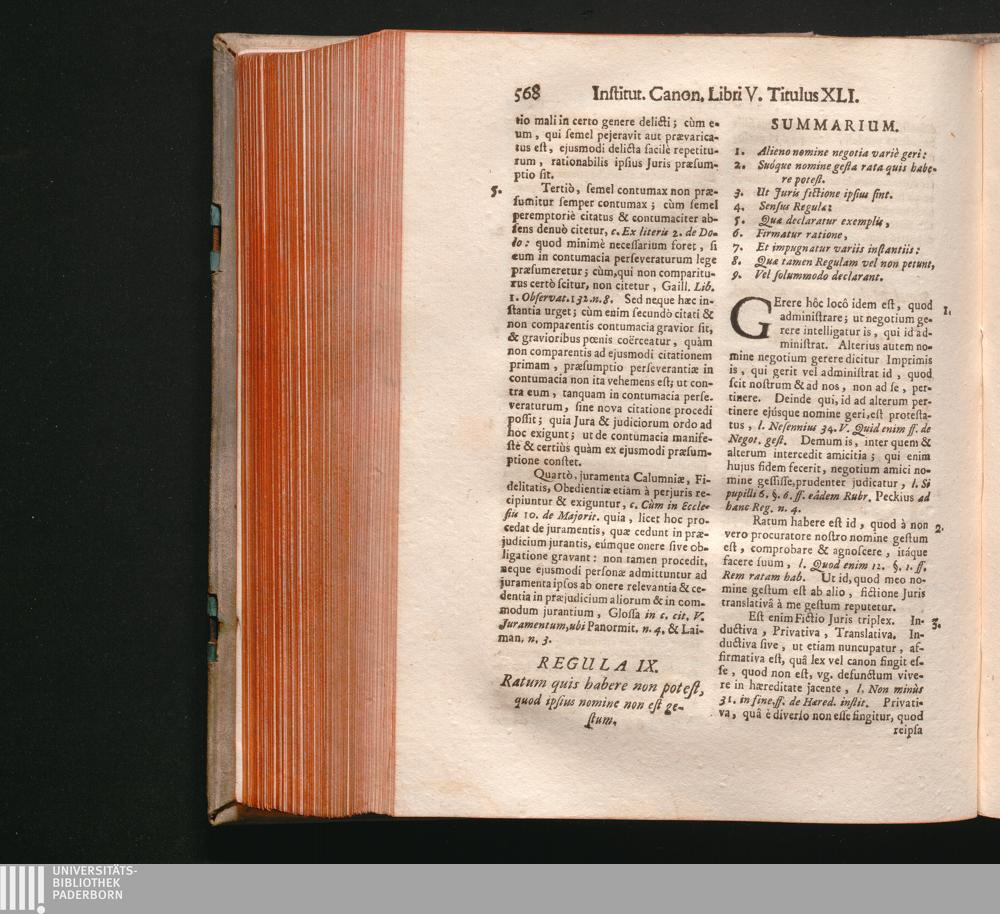 568 Institut. Canon. Libri V. Titulus XLI.
tio mali in certo genere delicti; cùm e-
um, qui semel pejeravit aut prævarica-
tus est, ejusmodi delicta facilè repetitu-
rum, rationabilis ipsius Juris præsum-
ptio sit.
5. Tertiò, semel contumax non præ-
sumitur semper contumax; cùm semel
peremptoriè citatus & contumaciter ab-
sens denuò citetur, c. Ex literis 2. de Do-
lo: quod minimè necessarium foret, si
eum in contumacia perseveraturum lege
præsumeretur; cùm, qui non comparitu-
rus certò scitur, non citetur, Gaill. Lib.
1. Observat. 132. n. 8. Sed neque hæc in-
stantia urget; cùm enim secundò citati &
non comparentis contumacia gravior sit,
& gravioribus pœnis coërceatur, quàm
non comparentis ad ejusmodi citationem
primam, præsumptio perseverantiæ in
contumacia non ita vehemens est; ut con-
tra eum, tanquam in contumacia perse-
veraturum, sine nova citatione procedi
possit; quia Jura & judiciorum ordo ad
hoc exigunt; ut de contumacia manife-
stè & certiùs quàm ex ejusmodi præsum-
ptione constet.
Quartò, juramenta Calumniæ, Fi-
delitatis, Obedientiæ etiam à perjuris re-
cipiuntur & exiguntur, c. Cùm in Eccle-
siis 10. de Majorit. quia, licet hoc pro-
cedat de juramentis, quæ cedunt in præ-
judicium jurantis, eúmque onere sive ob-
ligatione gravant: non tamen procedit,
neque ejusmodi personæ admittuntur ad
juramenta ipsos ab onere relevantia & ce-
dentia in præjudicium aliorum & in com-
modum jurantium, Glossa in c. cit. V.
Juramentum, ubi Panormit. n. 4. & Lai-
man, n. 3.
REGULA IX.
Ratum quis habere non potest,
quod ipsius nomine non est ge-
stum.
SUMMARIUM.
1. Alieno nomine negotia variè geri:
2. Suóque nomine gesta rata quis habe-
re potest.
3. Ut Juris fictione ipsius sint.
4. Sensus Regulæ
5. Quæ declaratur exemplis,
6. Firmatur ratione,
7. Et impugnatur variis instantiis:
8. Quæ tamen Regulam vel non petunt,
9. Vel solummodo declarant.
GErere hôc locô idem est, quod 1.
administrare; ut negotium ge-
rere intelligatur is, qui id ad-
ministrat. Alterius autem no-
mine negotium gerere dicitur Imprimis
is, qui gerit vel administrat id, quod
scit nostrum & ad nos, non ad se, per-
tinere. Deinde qui, id ad alterum per-
tinere ejúsque nomine geri, est protesta-
tus, l. Nesennius 34. V. Quid enim ff. de
Negot. gest. Demum is, inter quem &
alterum intercedit amicitia; qui enim
hujus fidem fecerit, negotium amici no-
mine gessisse, prudenter judicatur, l. Si
pupilli 6. §. 6. ff. eâdem Rubr. Peckius ad
hanc Reg. n. 4.
Ratum habere est id, quod à non 2.
vero procuratore nostro nomine gestum
est, comprobare & agnoscere, itáque
facere suum, l. Quod enim 12. §. 1. ff.
Rem ratam hab. Ut id, quod meo no-
mine gestum est ab alio, fictione Juris
translativâ à me gestum reputetur.
Est enim Fictio Juris triplex. In- 3.
ductiva, Privativa, Translativa. In-
ductiva sive, ut etiam nuncupatur, af-
firmativa est, quâ lex vel canon fingit es-
se, quod non est, vg. defunctum vive-
re in hæreditate jacente, l. Non minùs
31. in fine, ff. de Hæred. instit. Privati-
va, quâ è diverso non esse fingitur, quod
reipsa
UNIVERSITÄTS-
BIBLIOTHEK
PADERBORN